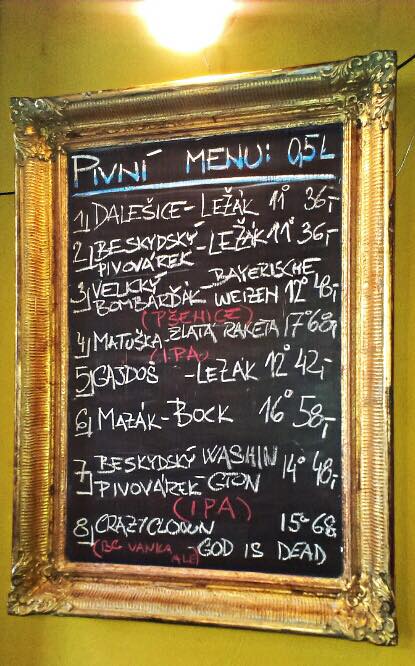 PIVNÍ MENU: 0,5L
1, DALEŠICE - LEŽÁK 11° 36,-
2, BESKYDSKÝ PIVOVÁREK - LEŽÁK 11° 36,-
3, VELICKÝ BOMBARĎÁK - BAYERISCHE WEIZEN 12° 48,-
(PŠENICE)
4, MATUŠKA - ZLATÁ RAKETA 17° 68,-
(IPA)
5, GAJDOŠ - LEŽÁK 12° 42,-
6, MAZÁK - BOCK 16° 58,-
7, BESKYDSKÝ WASHIN 14° 48,-
PIVOVÁREK GTON
(IPA)
8, CRAZY CLOWN 15° 68,-
ALE) GOD IS DEAD